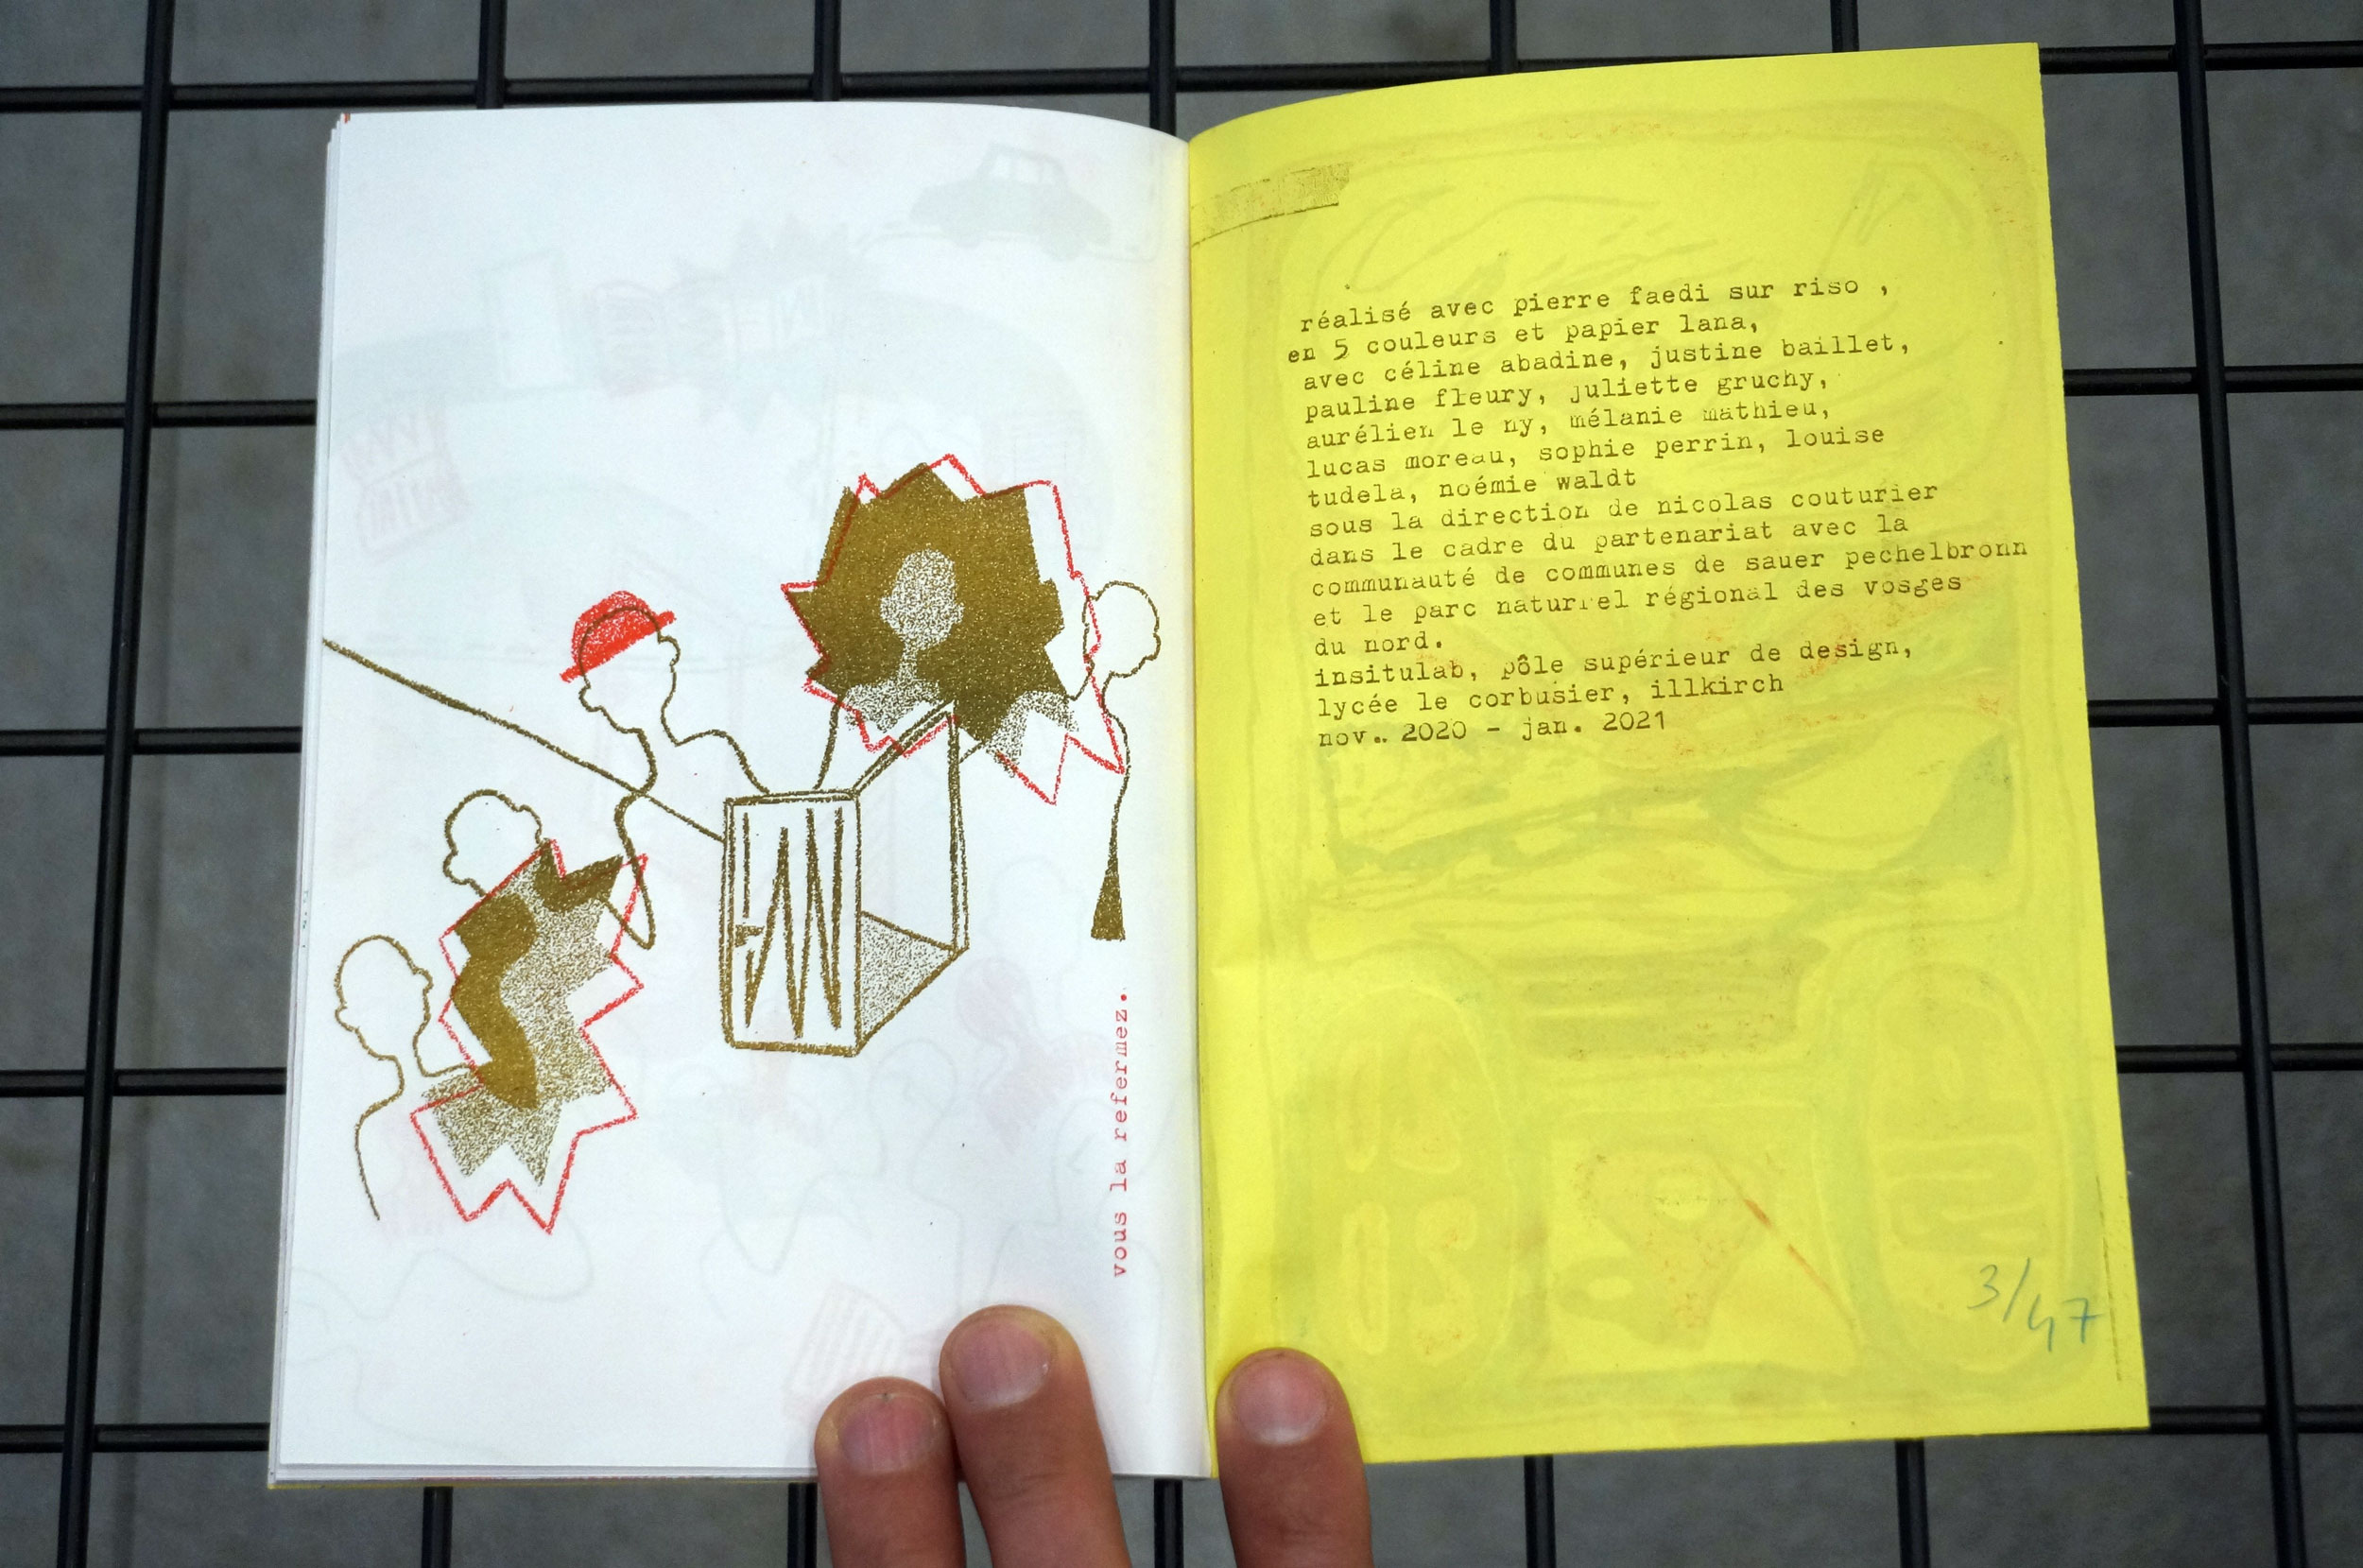 vous la refermez.
réalisé avec pierre faedi sur riso ,
en 5 couleurs et papier lana,
avec céline abadine, justine baillet,
pauline fleury, juliette gruchy,
aurélien le ny, mélanie mathieu,
lucas moreau, sophie perrin, louise
tudela, noémie waldt
sous la direction de nicolas couturier
dans le cadre du partenariat avec la
communauté de communes de sauer pechelbronn
et le parc naturrel régional des vosges
du nord.
insitulab, pôle supérieur de design,
lycée le corbusier, illkirch
nov.. 2020 - jan. 2021
3/47